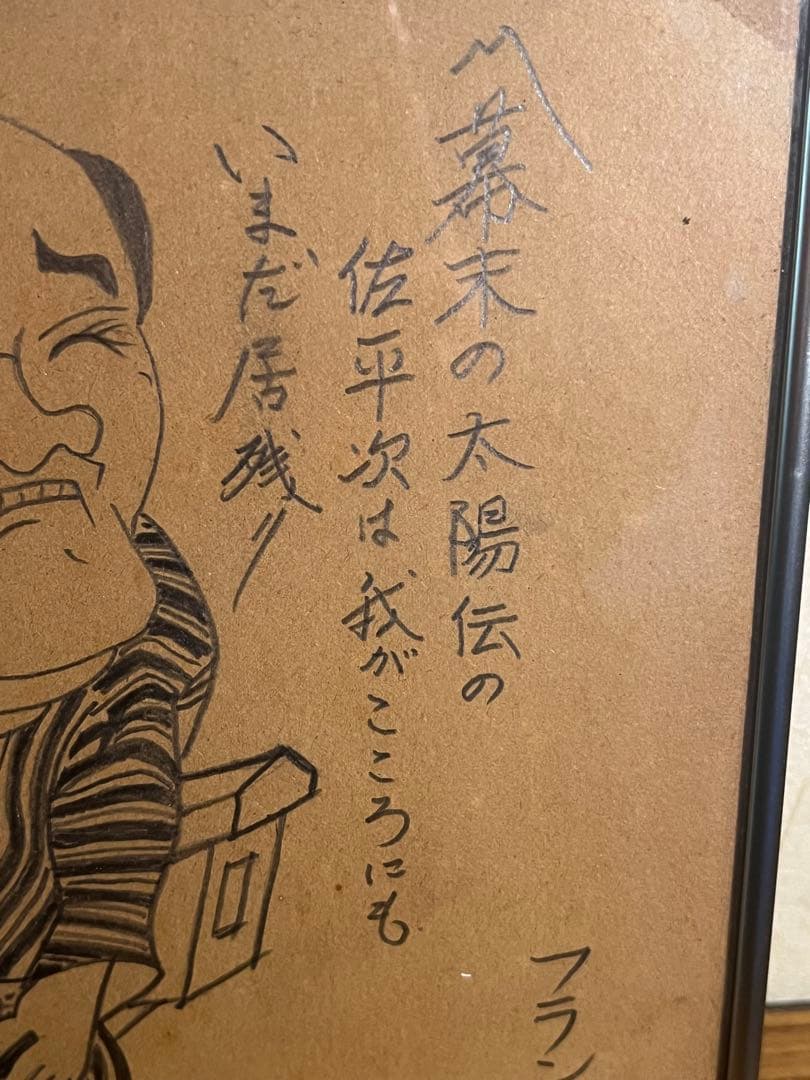 幕末の太陽伝の
佐平次は我がこころにも
いまだ居残り
フラン